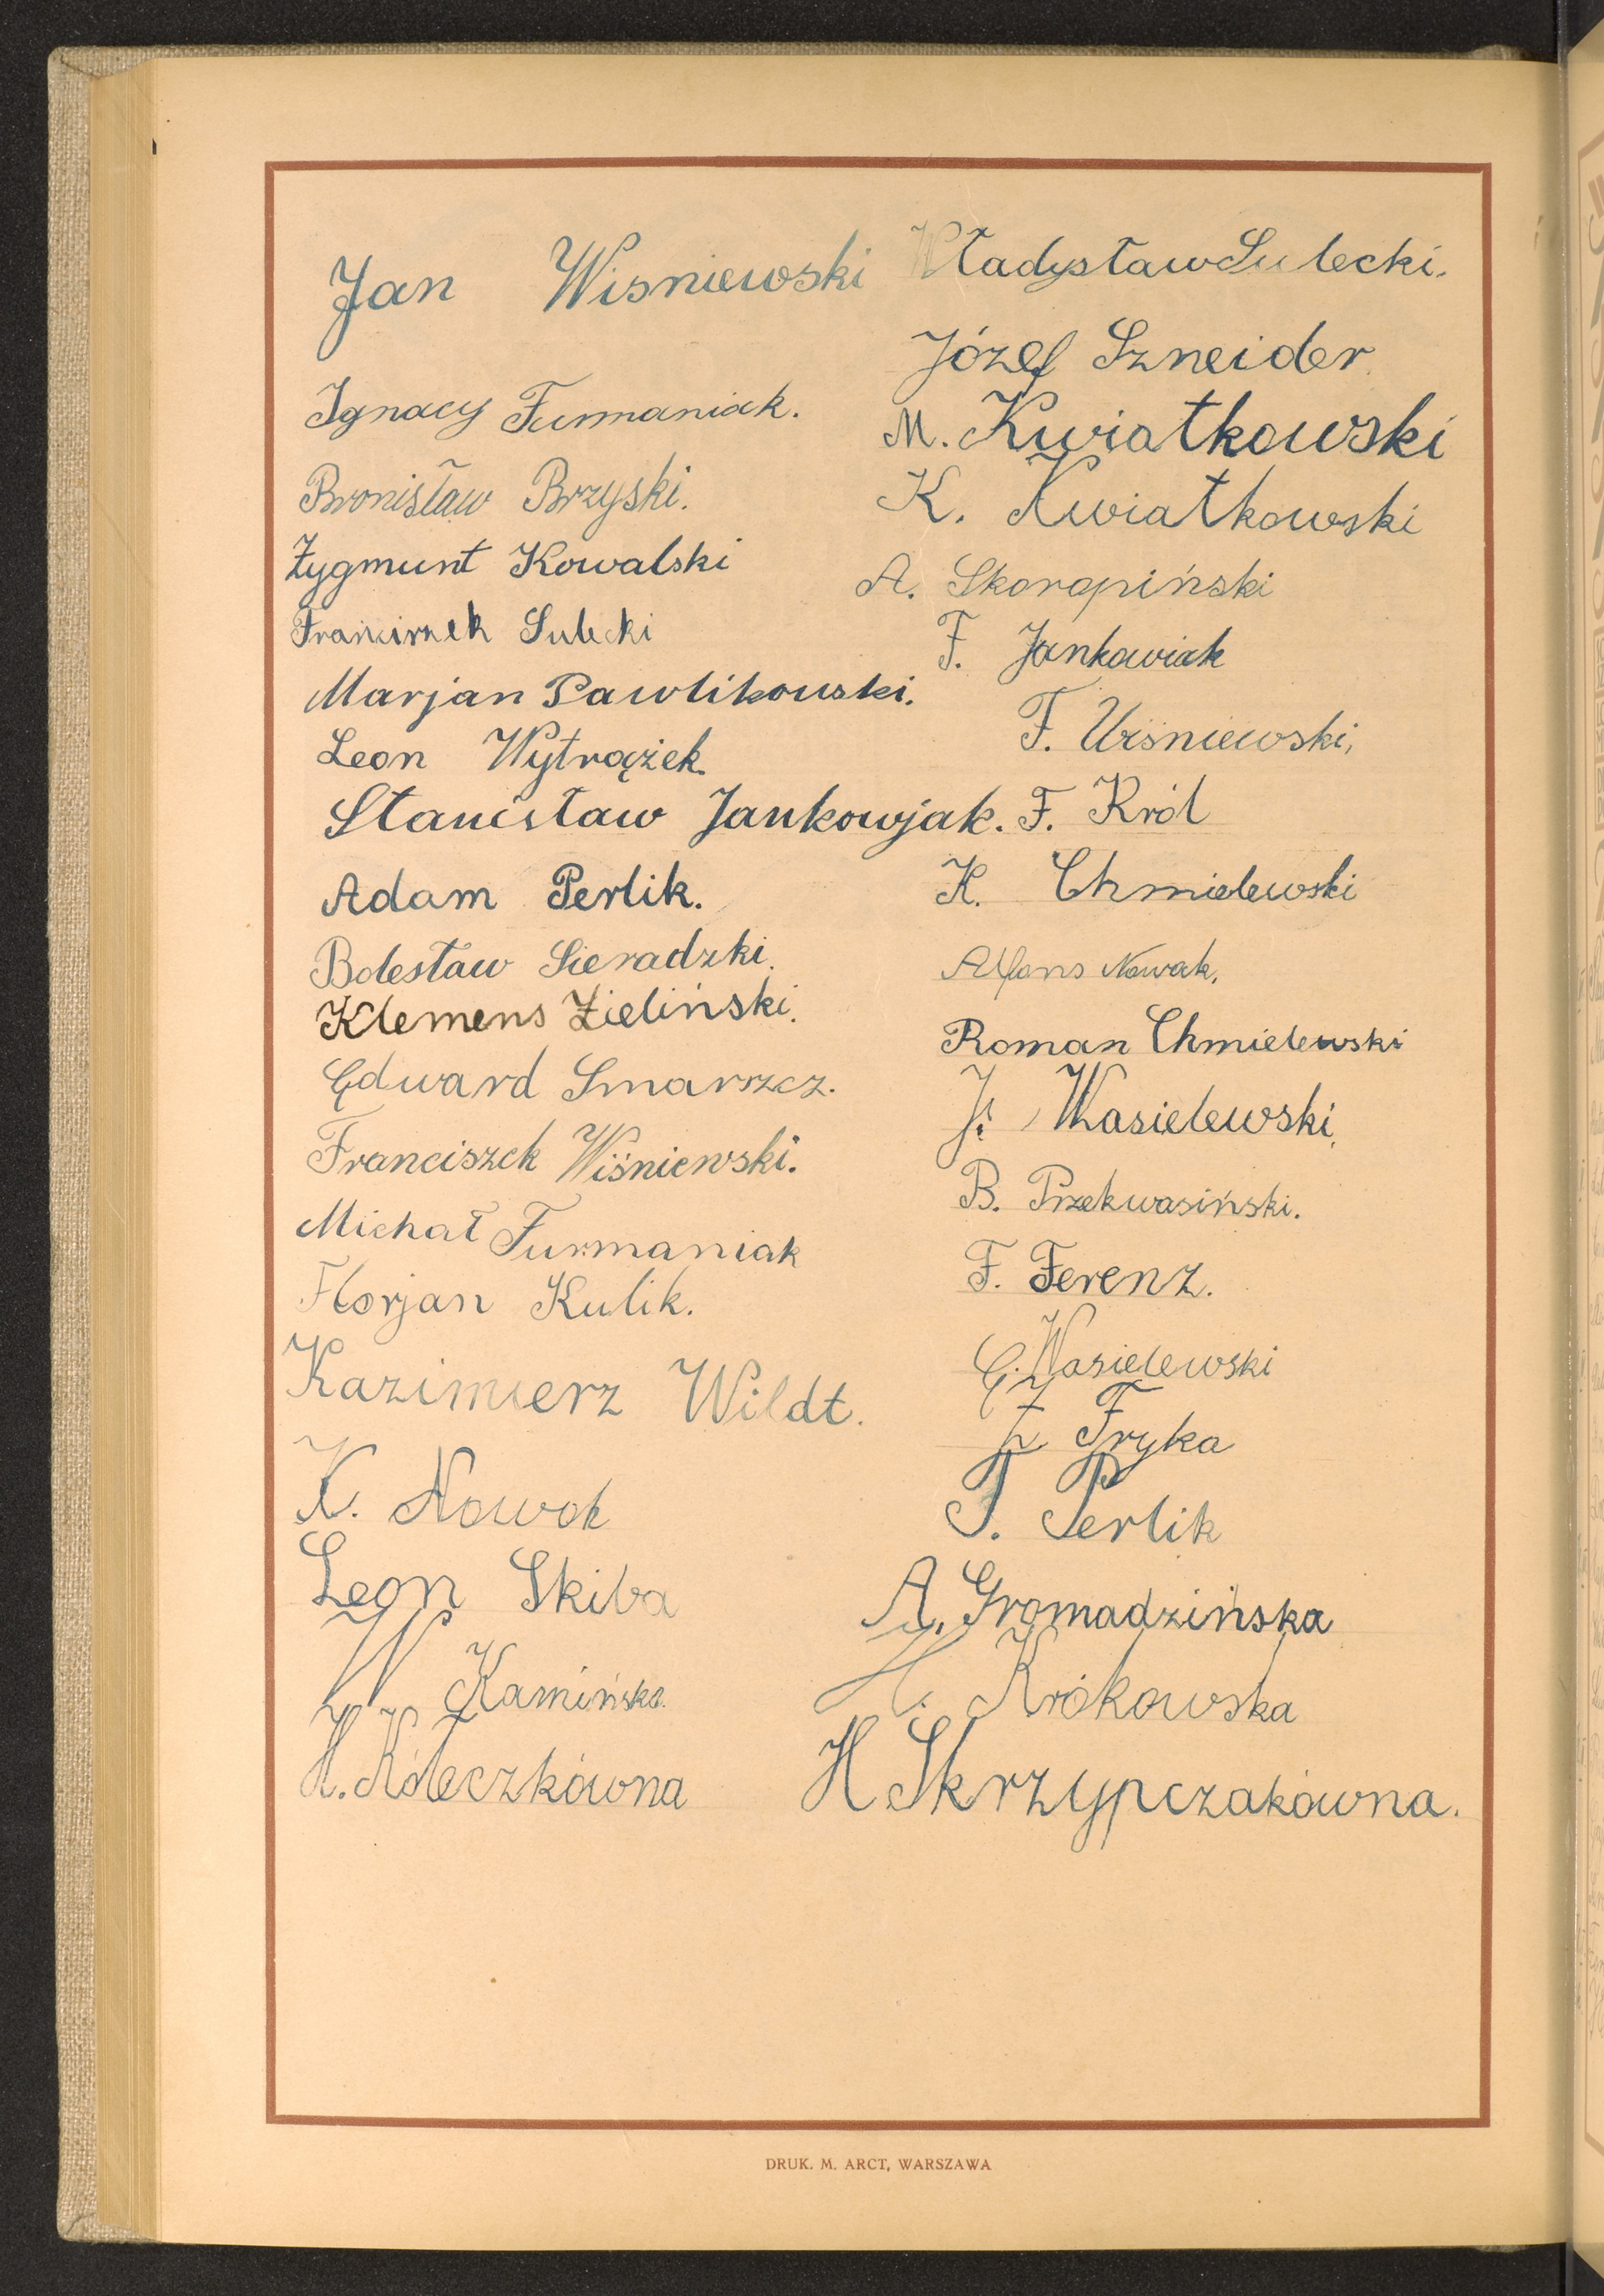 Jan Wisniewski
Ignacy Furmaniak.
Bronisław Brzyski.
Zygmunt Kowalski
Franciszek Sulecki
Marjan Pawlikowski.
Leon Wytrążek.
Stanisław Jankowjak.
Adam Perlik.
Bolesław Sieradzki.
Klemens Zieliński.
Edward Smarszcz.
Franciszek Wiśniewski.
Michał Furmaniak
Florjan Kulik.
Kazimierz Wildt.
K. Nowak
Leon Skiba
W Kamińska.
H. Kołeczkówna
Władysław Sulecki.
Józef Szneider
M. Kwiatkowski
K. Kwiatkowski
A. Skorapiński
F. Jankowiak
F. Wiśniewski,
F. Król
K. Chmielewski
Alfons Nowak,
Roman Chmielewski
J. Wasielewski.
B. Przekwasiński.
F. Ferenz.
G. Wasielewski
Z Fryka
P. Perlik
A. Gromadzińska
H. Krókowska
H Skrzypczakówna.
DRUK. M. ARCT, WARSZAWA